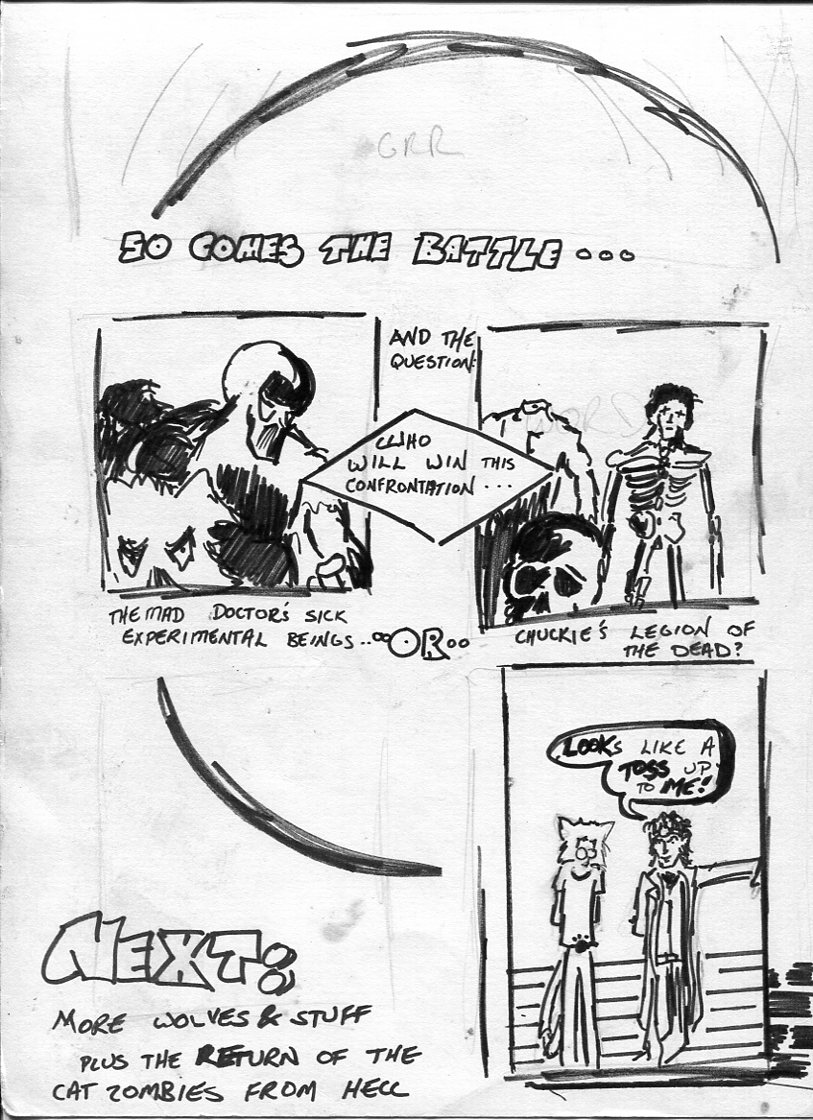 GRR
SO COMES THE BATTLE...
AND THE
QUESTION:
WORDS
WHO
WILL WIN THIS
CONFRONTATION...
THE MAD DOCTOR'S SICK
EXPERIMENTAL BEINGS..
..OR..
CHUCKIE'S LEGION OF
THE DEAD?
LOOKS LIKE A
TOSS UP
TO ME!
NEXT:
MORE WOLVES & STUFF
PLUS THE RETURN OF THE
CAT ZOMBIES FROM HELL